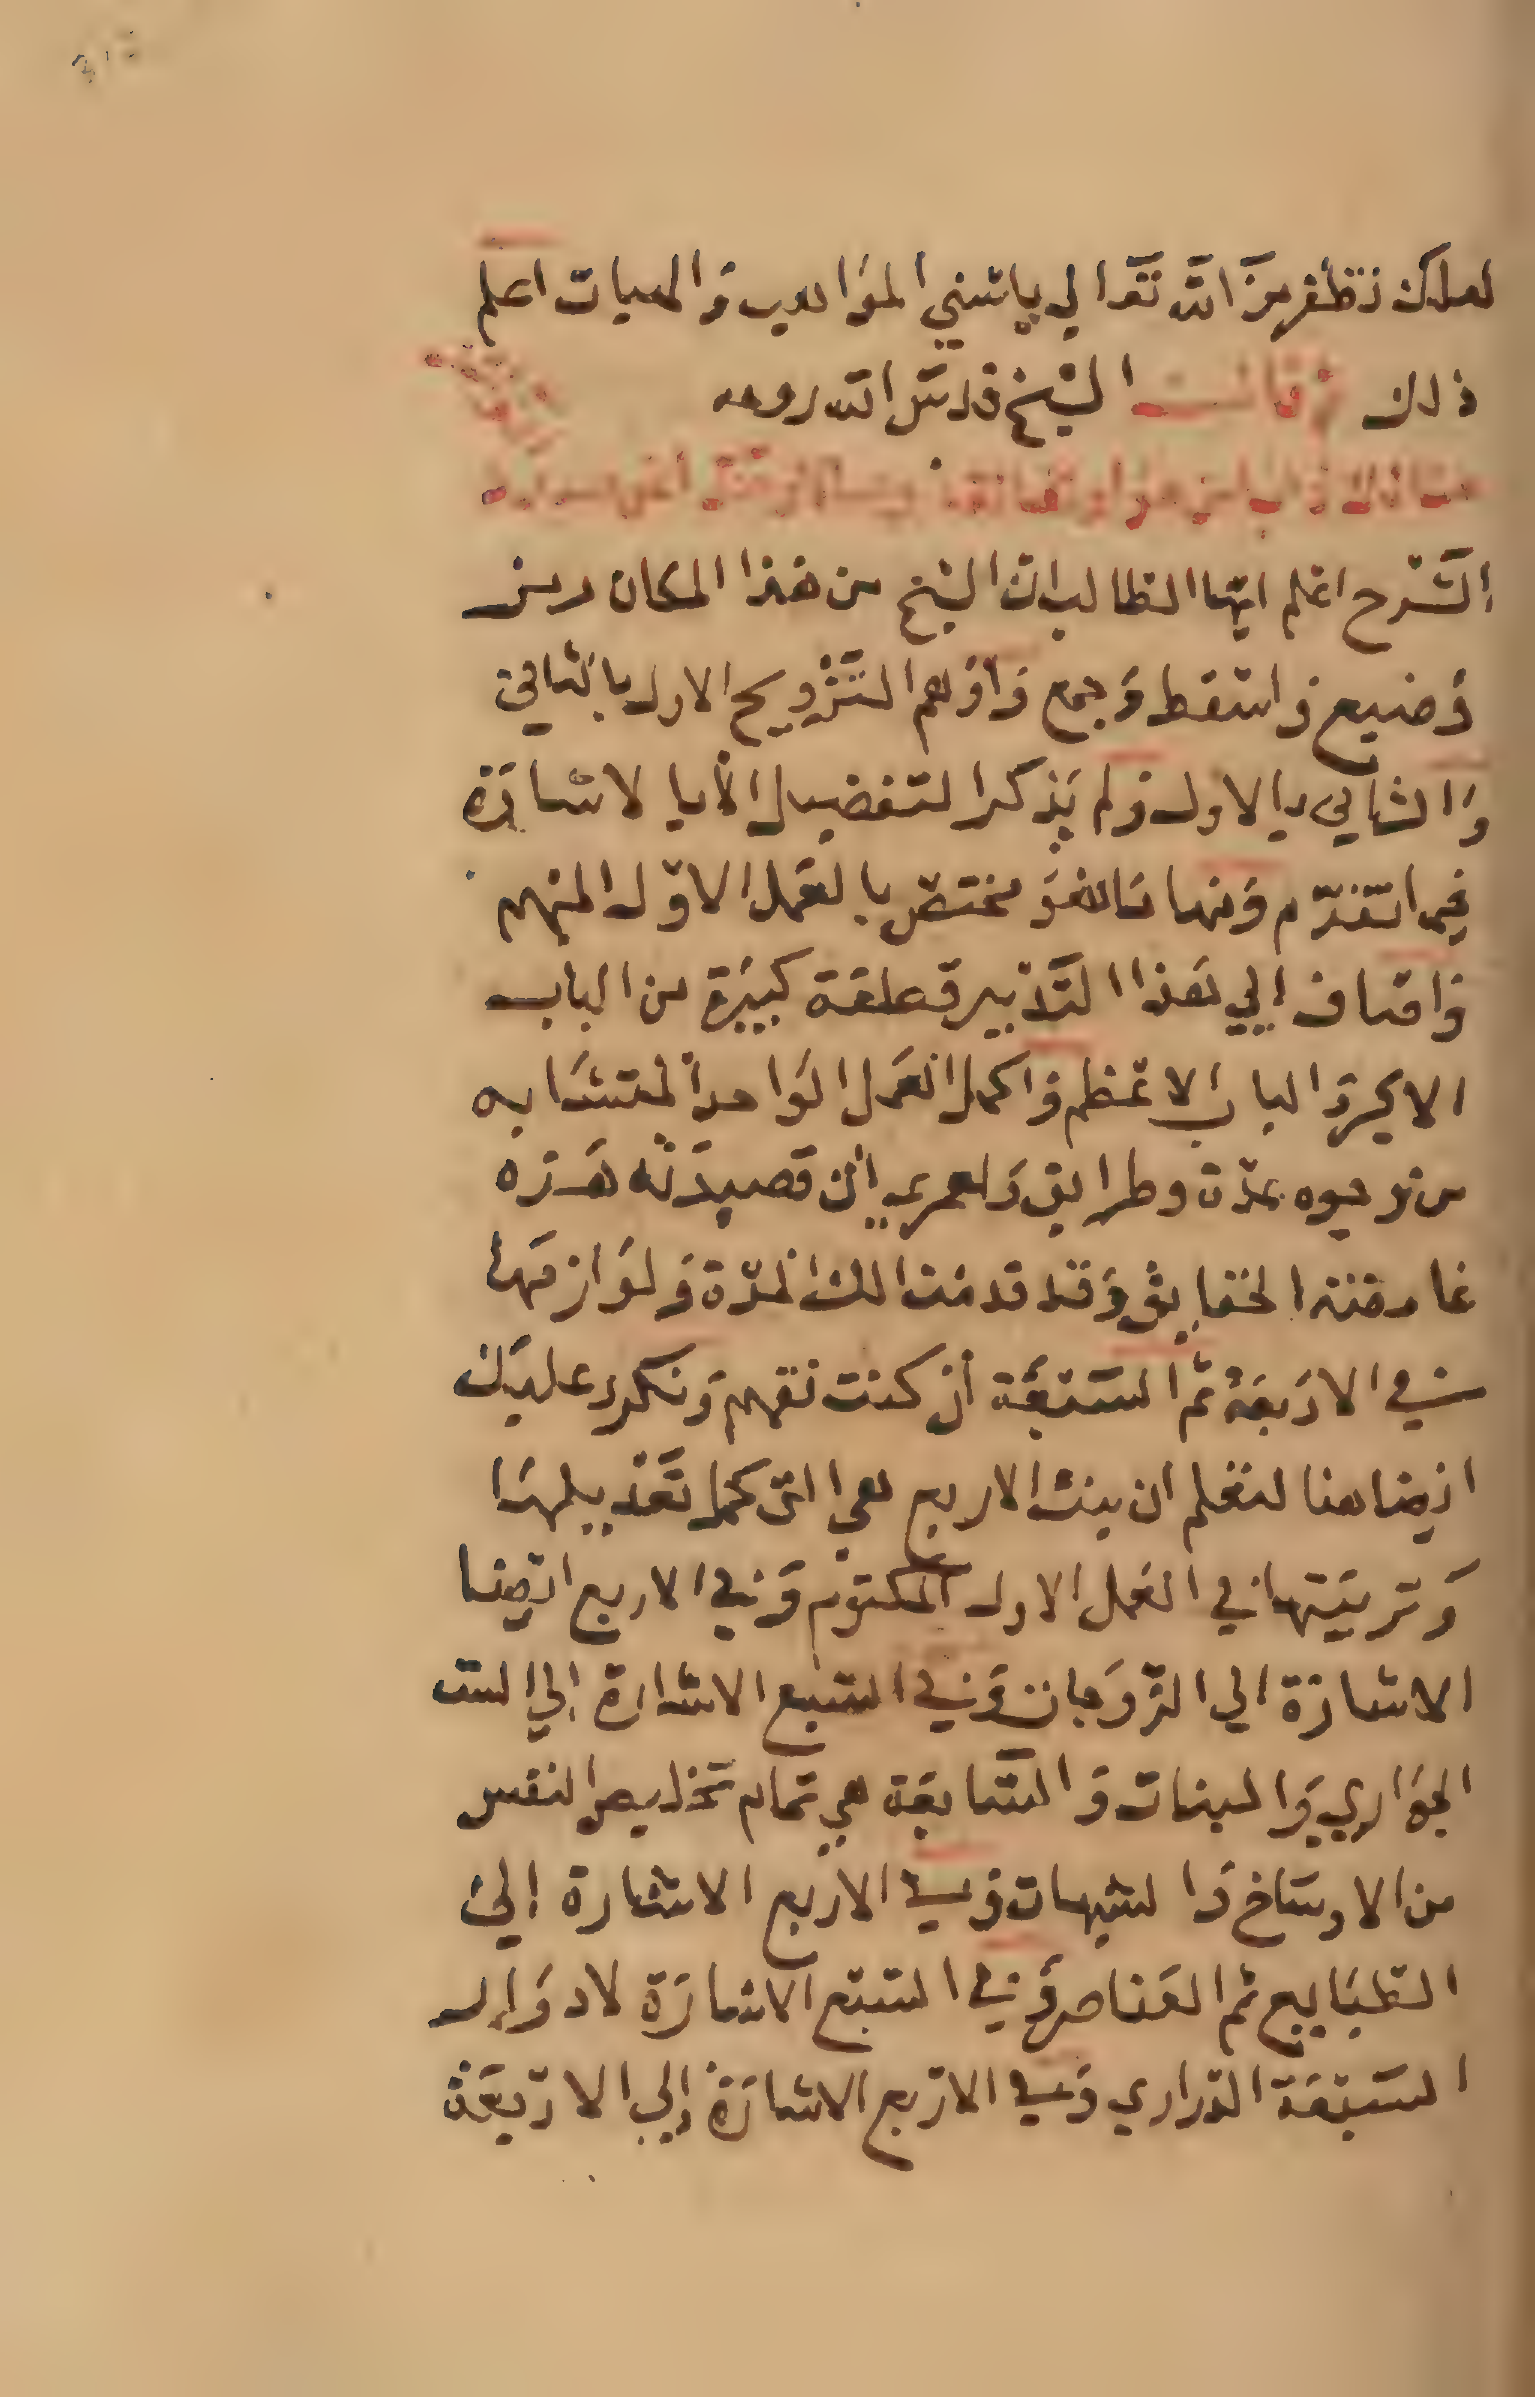 لعلك تظفر من الله تعالي باسني المواهب والهبات اعلم
ذلك وقال الشيخ قدس الله روحه
الشرح اعلم ايها الطالب ان الشيخ من هذا المكان رمز
وضيع واسقط وجمع واوهم التزويج الاول بالثاني
والثاني بالاول ولم يذكر التفضيل الا بالاشارة
فيما تقدم ومنها ما هو مختص بالعمل الاول المبهم
واضاف الي هذا التدبير قطعة كبيرة من الباب
الاكبر والباب الاعظم واكمل العمل الواحد المتشابه
من وجوه عدة وطرايق ولعمري ان قصيدته هذه
غامضة الحقايق وقد قدمنا لك المدة ولوازمها
في الاربعة ثم السبعة ان كنت تفهم ونكرر عليك
ايضا هنا لتعلم ان بنت الاربع هي التي كمل تعديلها
وتربيتها في العمل الاول المكتوم وفي الاربع ايضا
الاشارة الي الزوجان وفي السبع الاشارة الي الست
الجواري والبنات والسابعة هي تمام تخليص النفس
من الاوساخ والشبهات وفي الاربع الاشارة الي
الطبايع ثم العناصر وفي السبع الاشارة لادوار
السبعة الدراري وفي الاربع الاشارة الي الاربعة